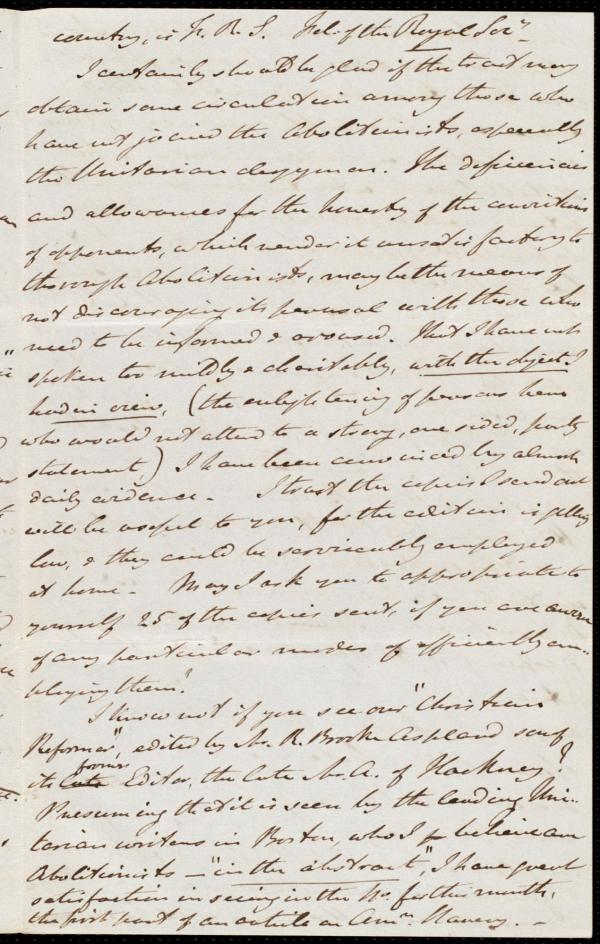 country, is F. R. S. Fel. of the Royal Socy.
I certainly should be glad if the tract may
obtain some circulation among those who
have not joined the Abolitionists, especially
the Unitarian clergymen. The deficiencies
and allowances for the honesty of the convictions
of opponents, which render it unsatisfactory to
thorough Abolitionists, may be the means of
not discouraging its perusal with those who
need to be informed & aroused. That I have not
spoken too mildly & charitably, with the object I
had in view, (the enlightening of persons here
who would not attend to a strong, one sided, party
statement) I have been convinced by almost
daily evidence. I trust the copies I send out
will be useful to you, for the edition is getting
low, & they could be serviceably employed
at home. May I ask you to appropriate to
yourself 25 of the copies sent, if you are aware
of any particular modes of efficiently em-
ploying them?
I know not if you see our "Christian
Reformer", edited by Mr. R. Brook Aspland son of
its late former Editor, the late Mr. A. of Hackney?
Presuming that it is seen by the leading Uni-
tarian writers in Boston, who I believe are
Abolitionists – "in the abstract", I have great
satisfaction in seeing in the No. for this month,
the first part of an article on Amn. Slavery. –